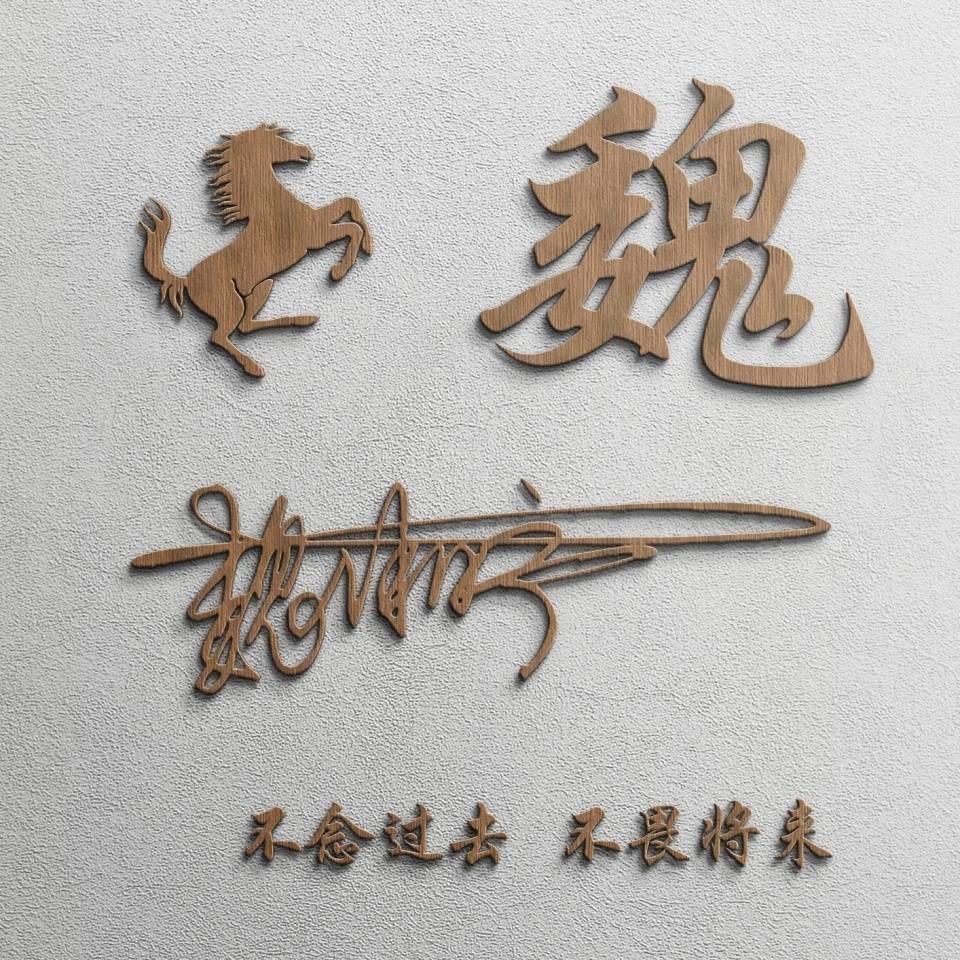 魏
不念过去 不畏将来